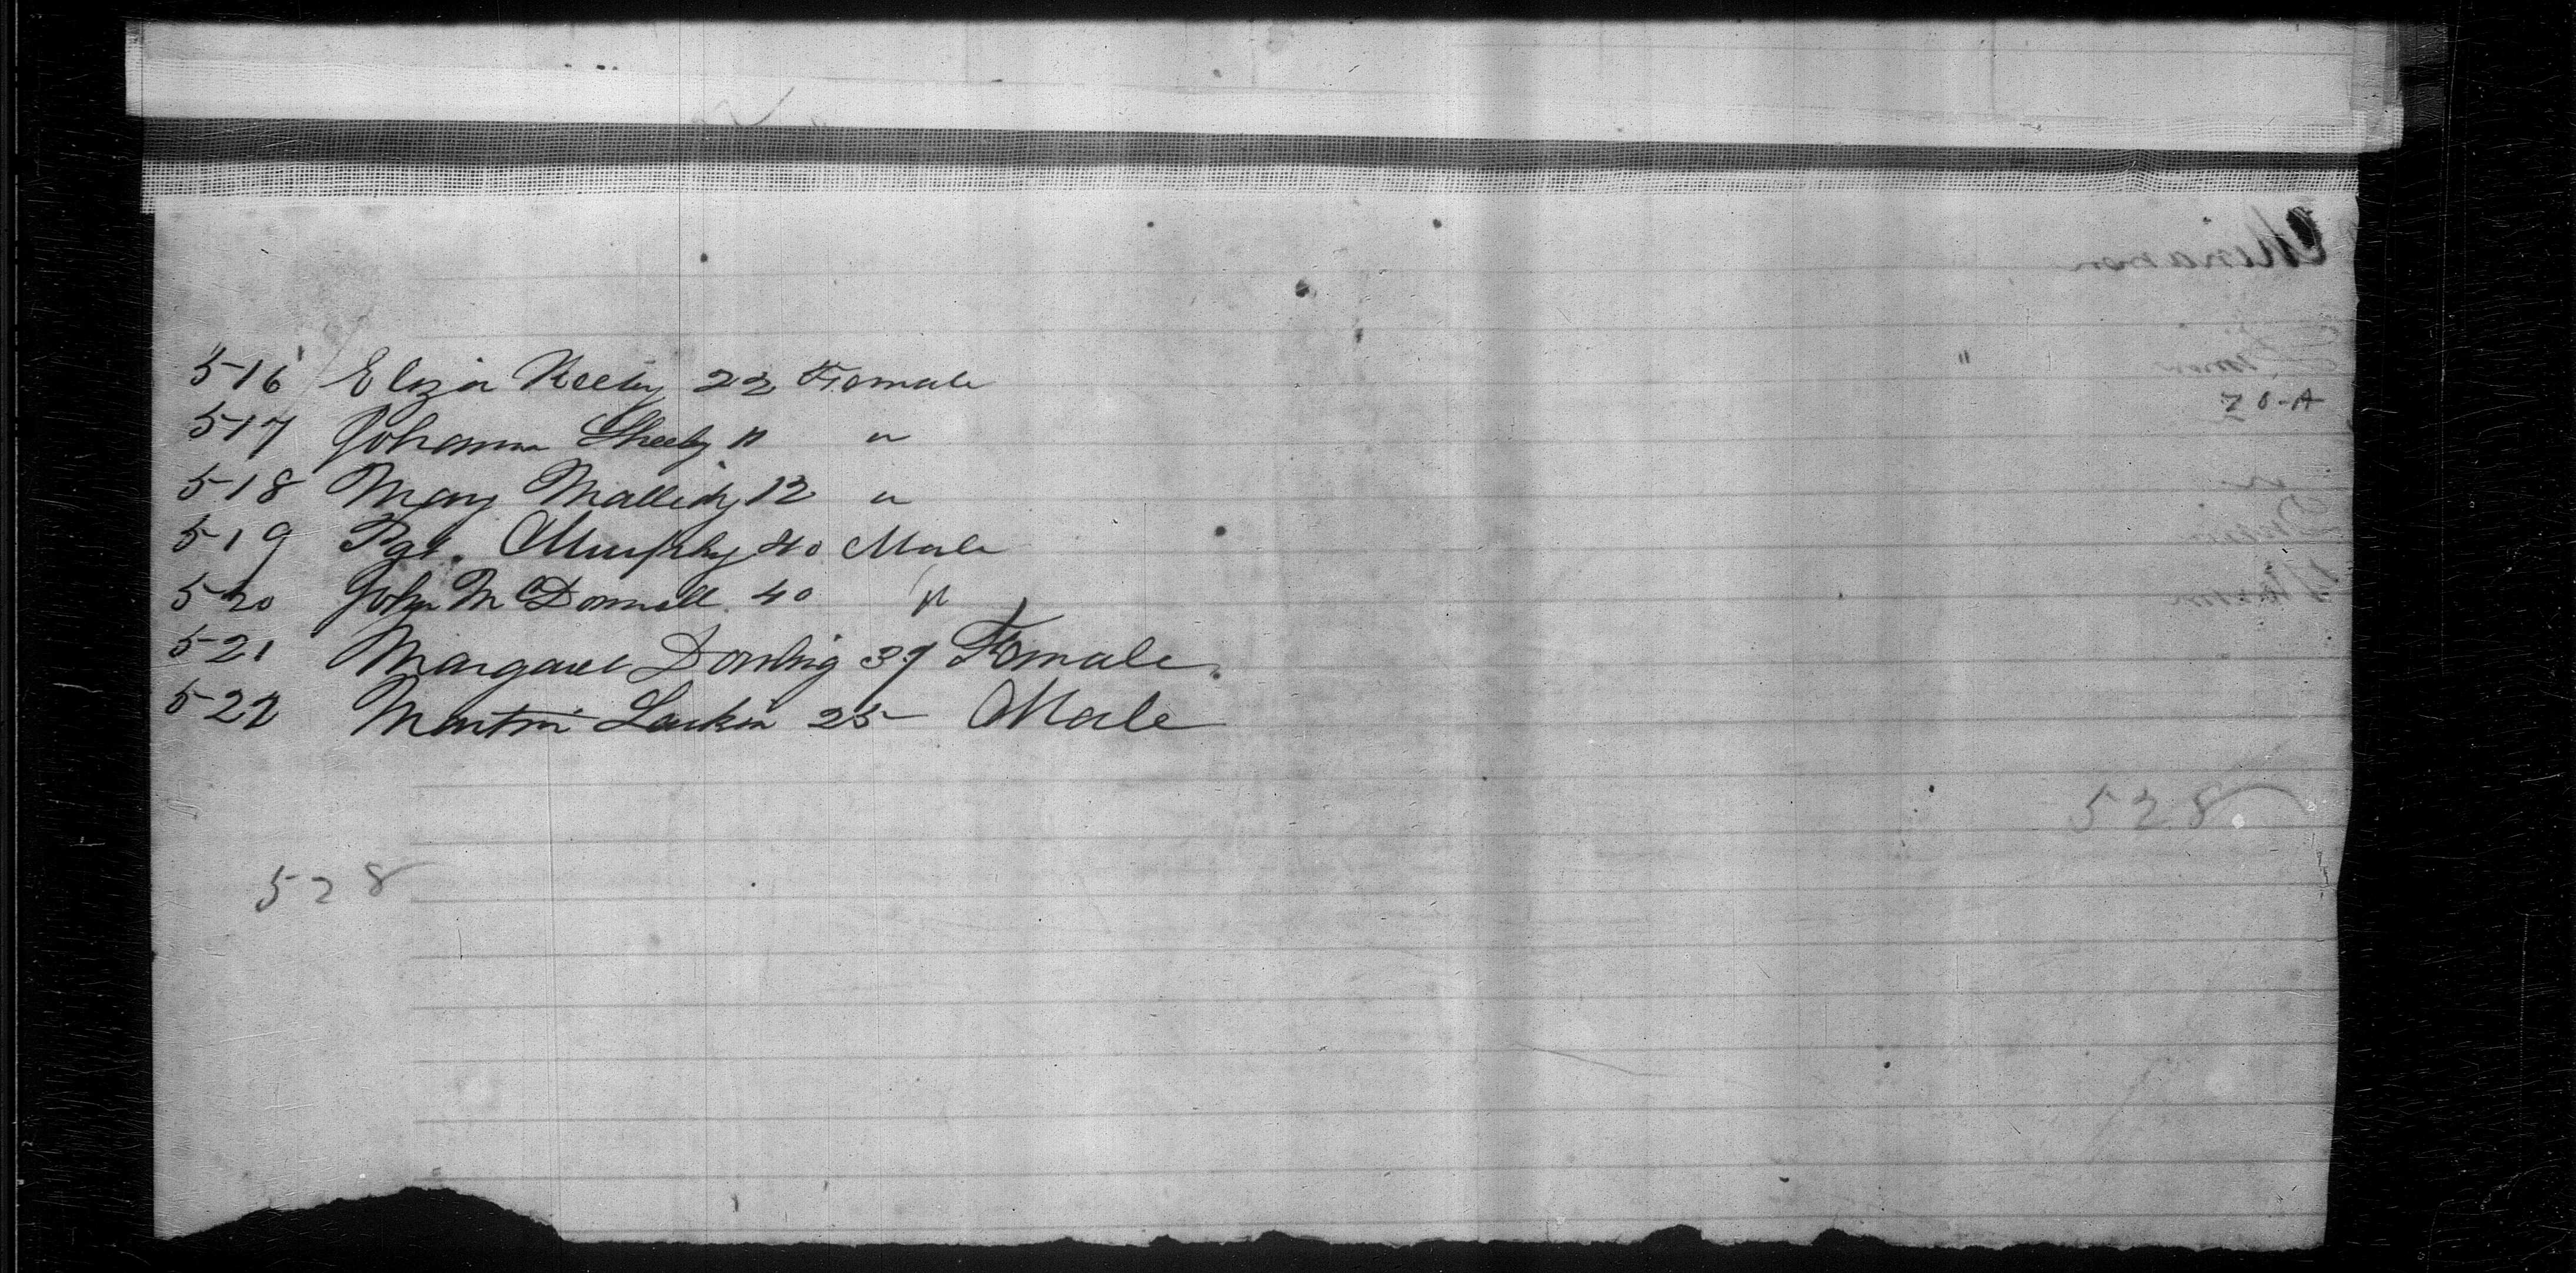 516 Eliza Keely 22 Female
517 Johanna Sheehy 11 "
518 Mary Mallidy 12 "
519 Pat. Murphy 40 Male
520 John McDonnell. 40 "
521 Margaret Dowling 37 Female
522 Martin Larkin 25 Male
528
528